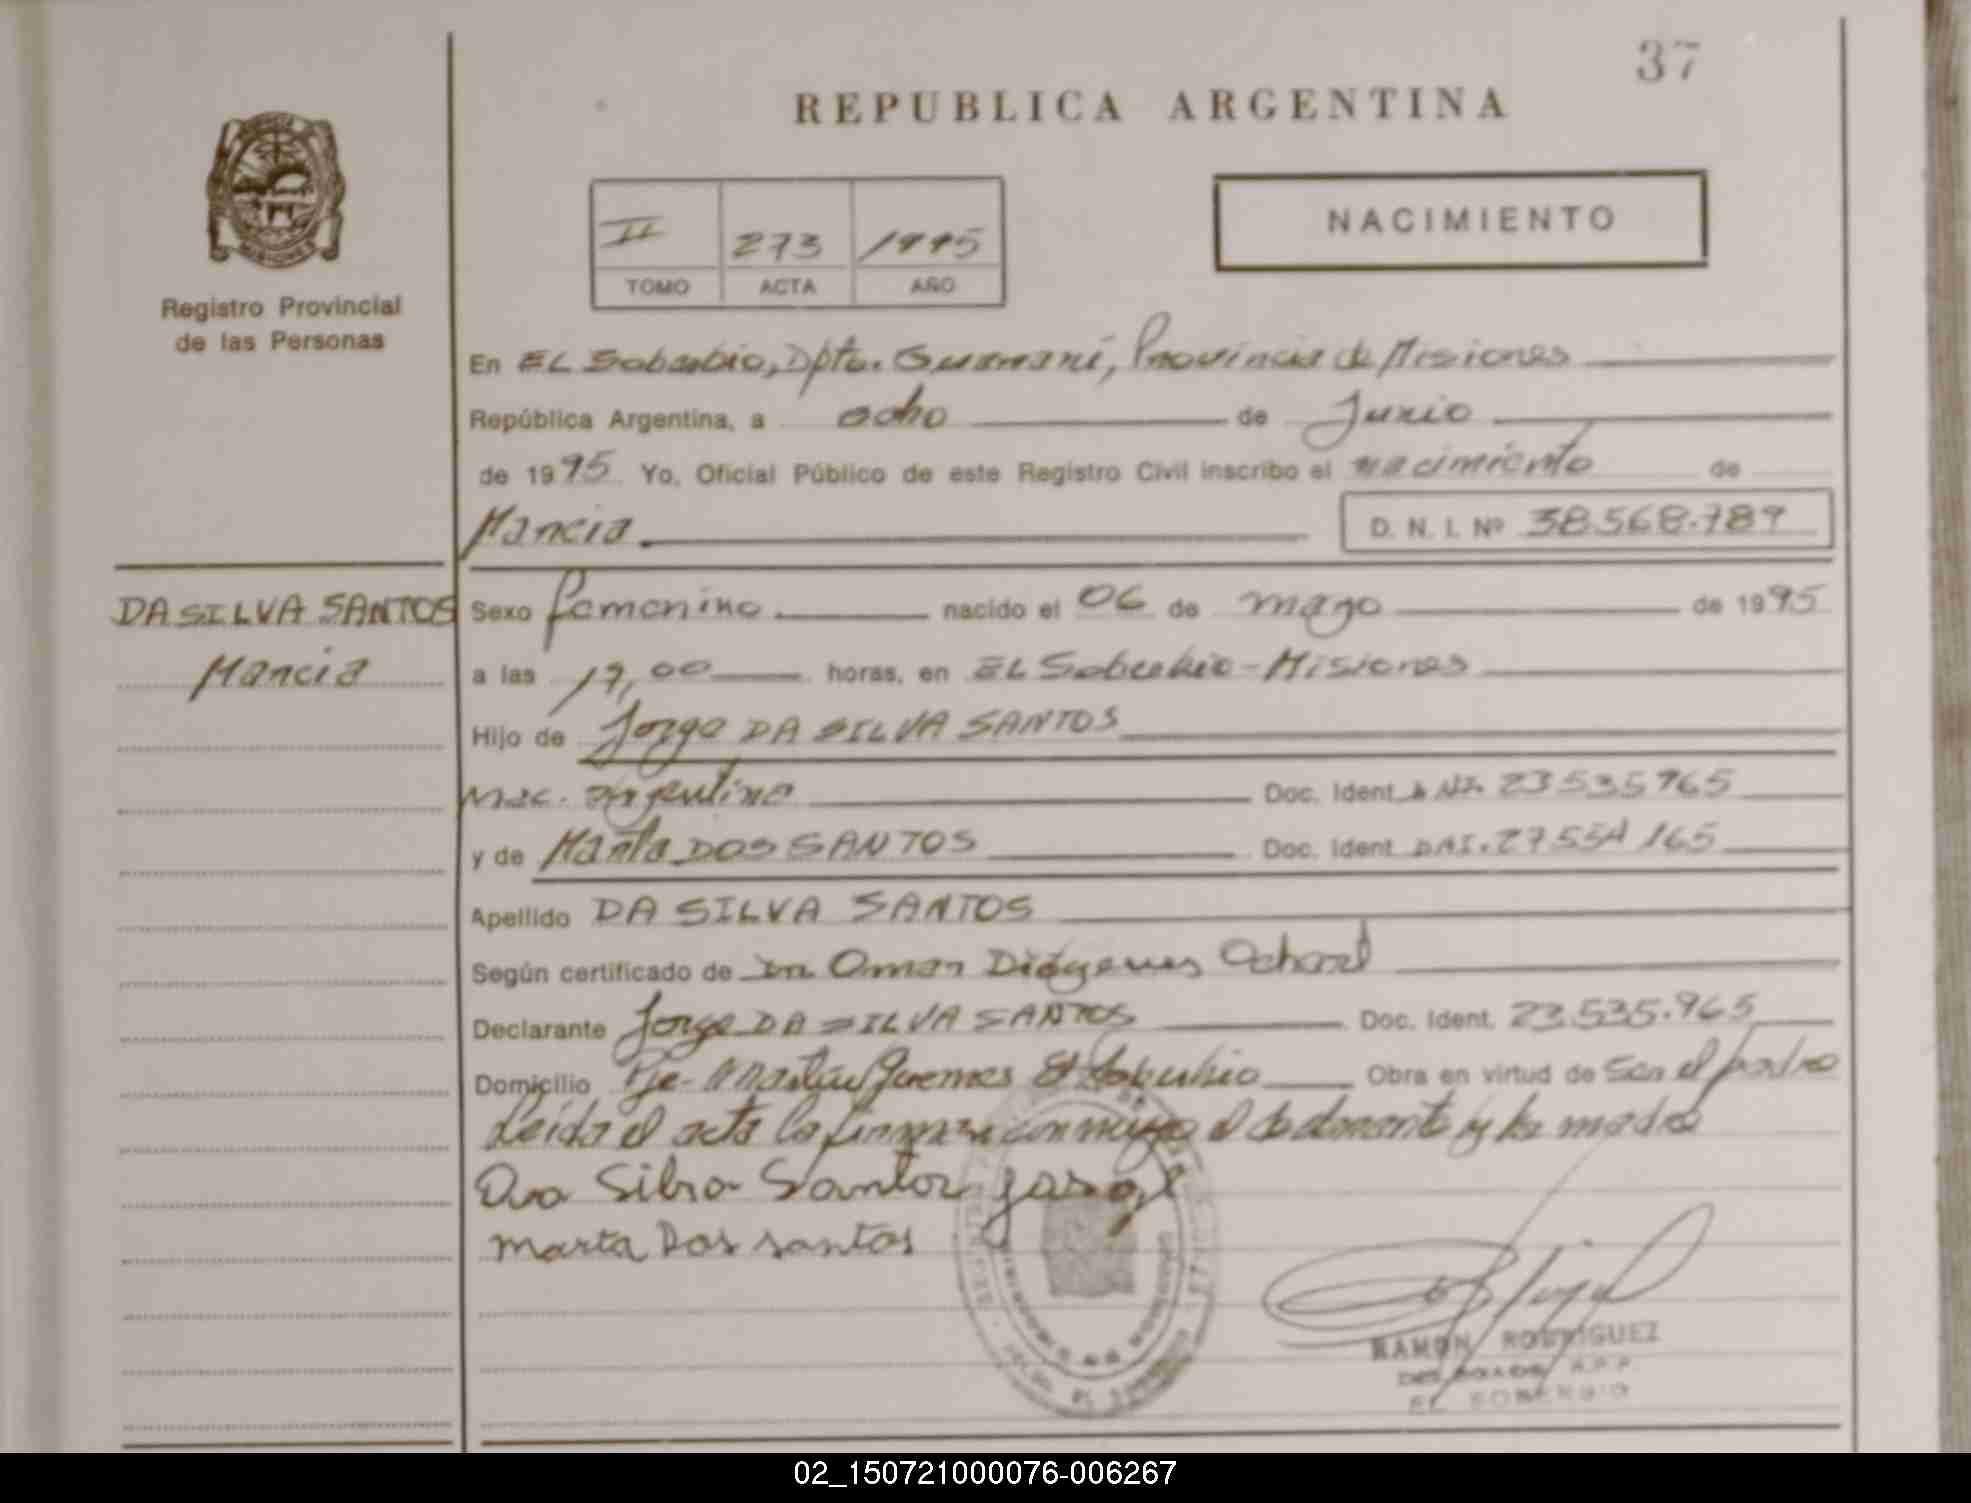 37
REPUBLICA ARGENTINA
NACIMIENTO
II 273 1995
TOMO ACTA AÑO
Registro Provincial
de las Personas
En EL Soberbio, Dpto. Guaraní, Provincia de Misiones
República Argentina, a ocho de Junio
de 1995 Yo, Oficial Público de este Registro Civil inscribo el nacimiento de
Marcia D. N. I. Nº 38.568.789
DA SILVA SANTOS
Marcia
Sexo femenino nacido el 06 de mayo de 1995
a las 19,00 horas, en EL Soberbio - Misiones
Hijo de Jorge DA SILVA SANTOS
Nac. argentina Doc. Ident. D.N.I. 23535965
y de Marta DOS SANTOS Doc. Ident. D.N.I. 27554165
Apellido DA SILVA SANTOS
Según certificado de Dr. Omar Diógenes Ochard
Declarante Jorge DA SILVA SANTOS Doc. Ident. 23.535.965
Domicilio Pje. Martín Guemes El Soberbio Obra en virtud de ser el padre
Leída el acta la firman conmigo el declarante y la madre
Silva Santos
marta Dos santos
RAMON RODRIGUEZ
EL SOBERBIO
02_150721000076-006267